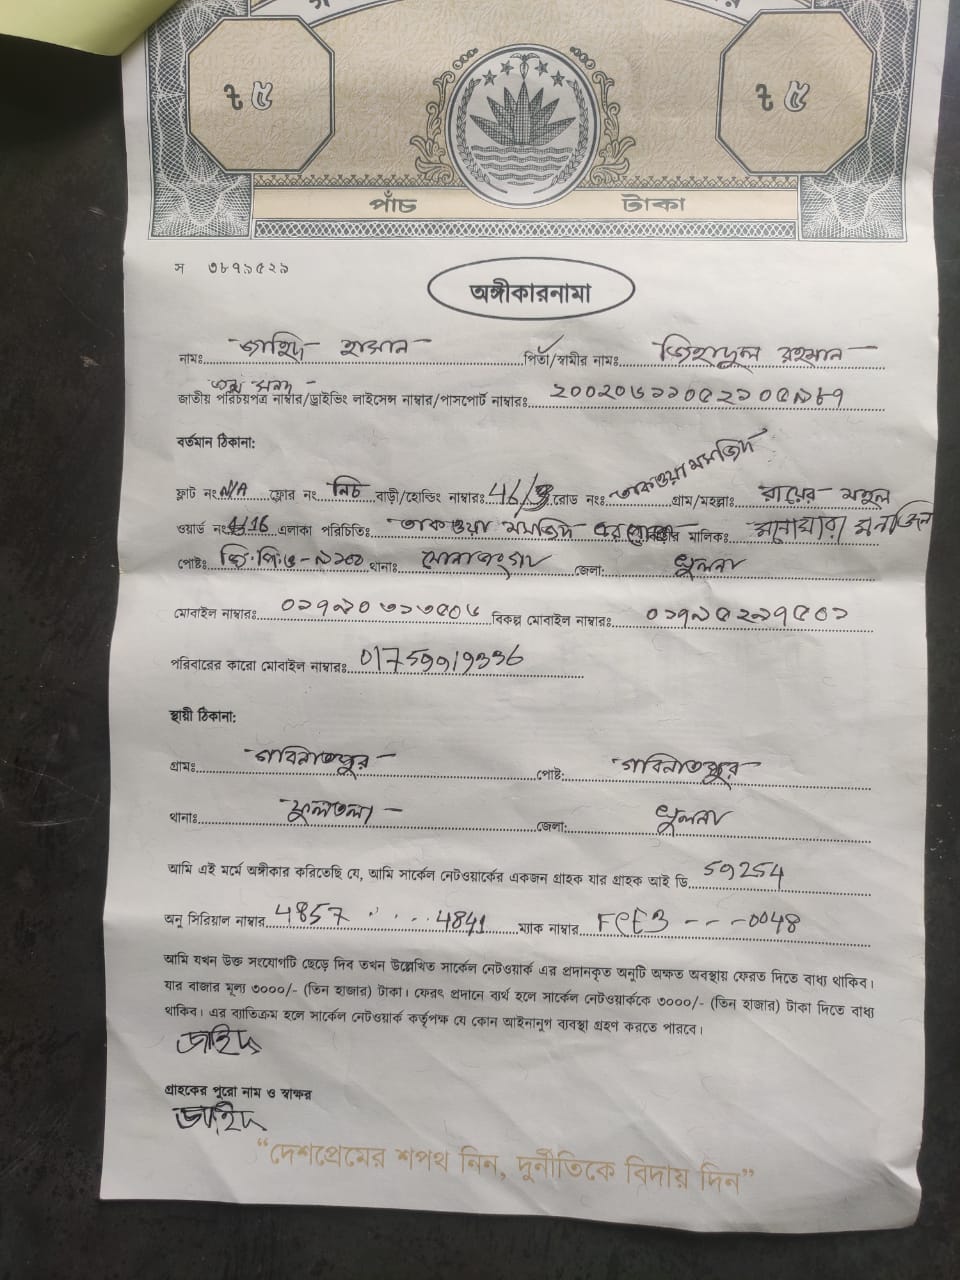 ৳ ৫ ৳ ৫
পাঁচ টাকা
স ৩৮৭৯৫২৯
অঙ্গীকারনামা
নামঃ জাহিদ হাসান পিতা/স্বামীর নামঃ জিহাদুল রহমান
জন্ম সনদ
জাতীয় পরিচয়পত্র নাম্বার/ড্রাইভিং লাইসেন্স নাম্বার/পাসপোর্ট নাম্বারঃ
বর্তমান ঠিকানা:
ফ্লাট নং N/A ফ্লোর নং নিচ বাড়ী/হোল্ডিং নাম্বারঃ রোড নংঃ তাকওয়া মসজিদ গ্রাম/মহল্লাঃ রায়ের মহল
ওয়ার্ড নংঃ 16 এলাকা পরিচিতিঃ তাকওয়া মসজিদ এর মালিকঃ মনোয়ারা মনজিল
পোষ্টঃ জি.পি.ও-৯১০০ থানাঃ সোনাডাংগা জেলাঃ খুলনা
মোবাইল নাম্বারঃ ০১৭৯০৩১৩৫০৬ বিকল্প মোবাইল নাম্বারঃ ০১৭৯৫২৯৭৫০১
পরিবারের কারো মোবাইল নাম্বারঃ
স্থায়ী ঠিকানা:
গ্রামঃ পোষ্ট:
থানাঃ ফুলতলা জেলা: খুলনা
আমি এই মর্মে অঙ্গীকার করিতেছি যে, আমি সার্কেল নেটওয়ার্কের একজন গ্রাহক যার গ্রাহক আই ডি 59254
অনু সিরিয়াল নাম্বার 4857 ..... 4841 ম্যাক নাম্বার ---0048
আমি যখন উক্ত সংযোগটি ছেড়ে দিব তখন উল্লেখিত সার্কেল নেটওয়ার্ক এর প্রদানকৃত অনুটি অক্ষত অবস্থায় ফেরত দিতে বাধ্য থাকিব।
যার বাজার মূল্য ৩০০০/- (তিন হাজার) টাকা। ফেরৎ প্রদানে ব্যর্থ হলে সার্কেল নেটওয়ার্ককে ৩০০০/- (তিন হাজার) টাকা দিতে বাধ্য
থাকিব। এর ব্যতিক্রম হলে সার্কেল নেটওয়ার্ক কর্তৃপক্ষ যে কোন আইনানুগ ব্যবস্থা গ্রহণ করতে পারবে।
জাহিদ
গ্রাহকের পুরো নাম ও স্বাক্ষর
জাহিদ
“দেশপ্রেমের শপথ নিন, দুর্নীতিকে বিদায় দিন”